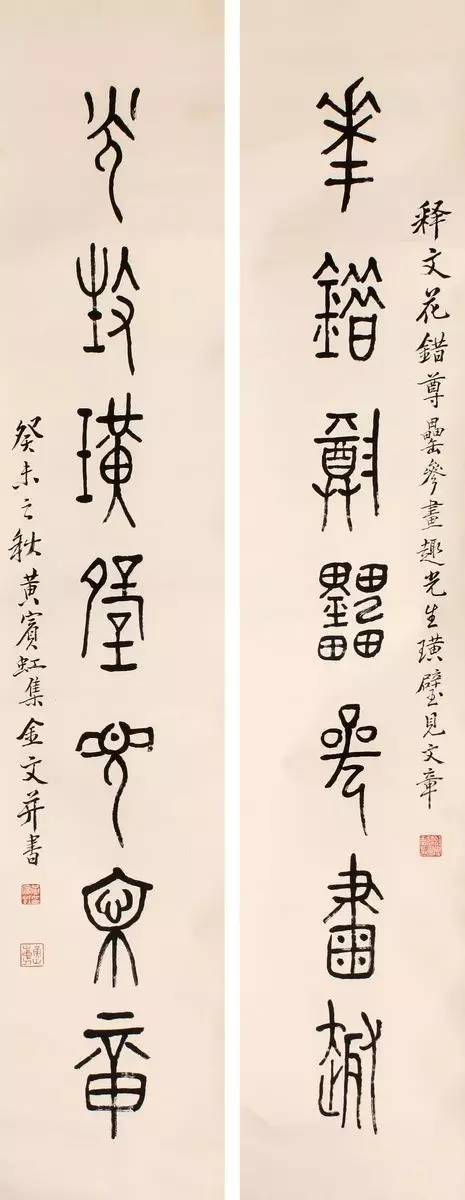 释文花錯尊罍參畫趣光生璜璧見文章
花錯尊罍參畫趣
光生璜璧見文章
癸未之秋黃賓虹集金文并書